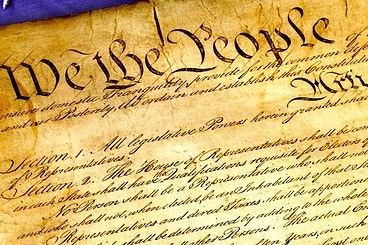 We the People
insure domestic Tranquility, provide for the common Defe
and our Posterity, do ordain and establish this Constitution
Arti
Section 1. All legislative Powers herein granted shall
of Representatives.
Section 2. The House of Representatives shall be com
in each State shall have the Qualifications requisite for Electors of
No Person shall be a Representative who shall not
and who shall not, when elected, be an Inhabitant of that State
Representatives and direct Taxes shall be apportion
shall be determined by adding to the whole
other Persons. The actual
ten Years, in such